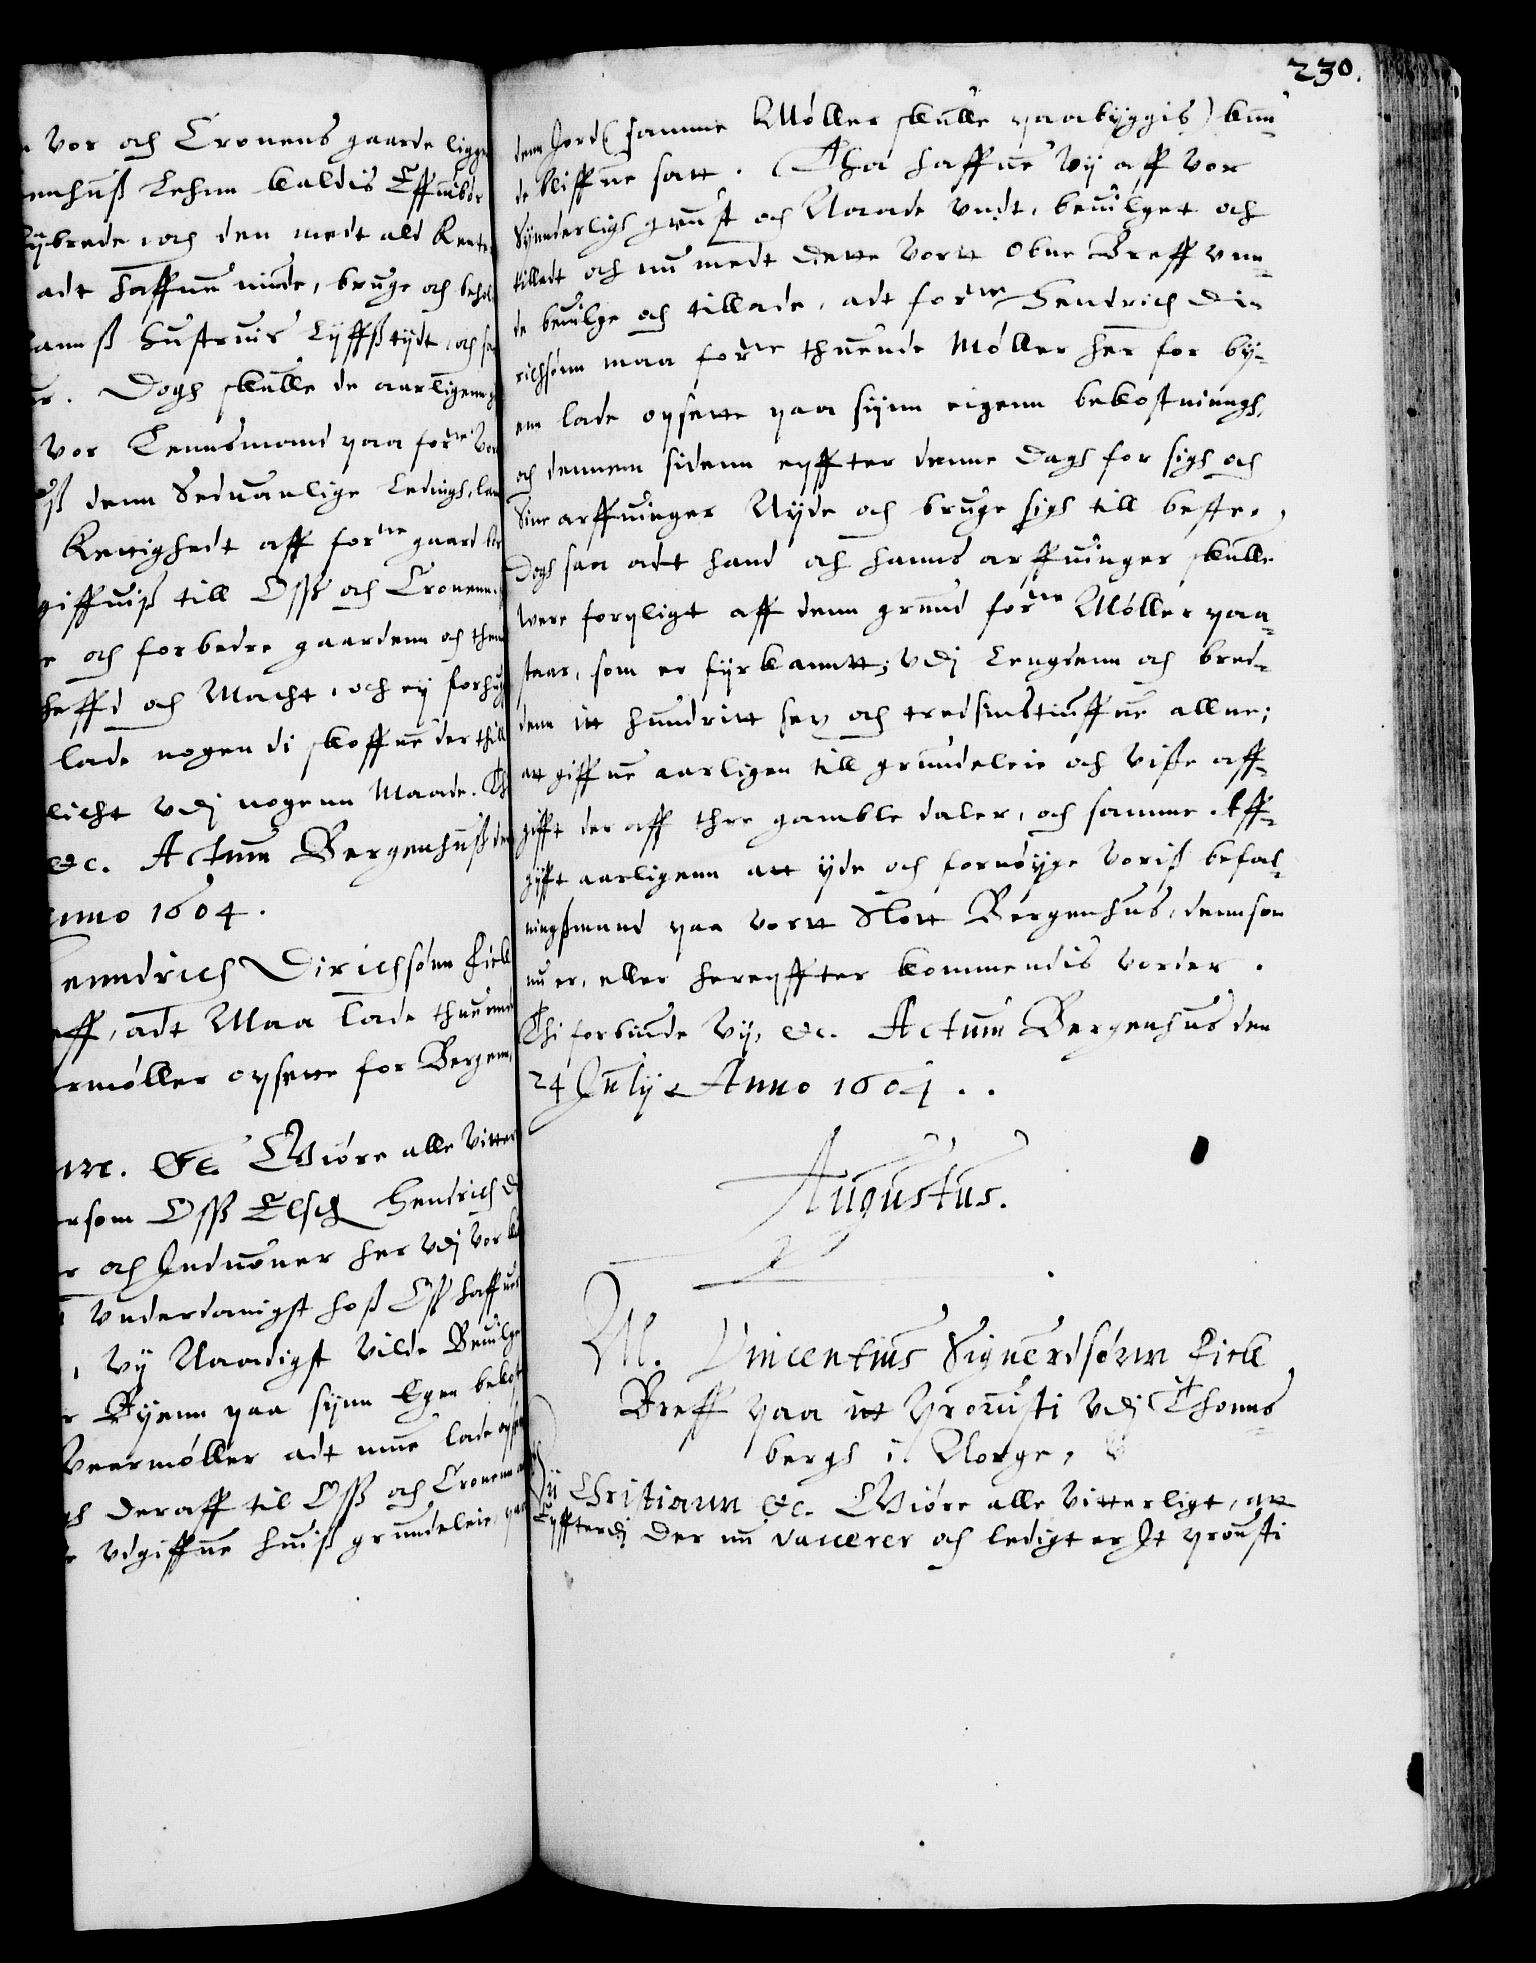 Vor och Cronens gaarde ligge
enhuß Lehnn kaldis
brede, och den medt ald Rente
adt haffue niude, bruge och behol
annß Hustruis Lyffßtydt, och
Dogh skulle de aarligenn
Vor Lennsmand paa forne Vor
denn Seduanlige Ledingh,
Rettighedt aff forne gaard bør
giffuiß till Oß och Cronenn
och forbedre gaardenn och thenn
heffd och Macht, och ey forhug
lade nogen di skoffue der till
licht vdj nogenn Maade. Th
&c. Actum Bergenhuß den
nno 1604.
enndrich Dirichsønn Fick
eff, adt Maa lade thuenne
rmøller opsette for Bergenn,
&c. Giøre alle Vitter
rsom Oß Elsch. Hendrich D
och Induoner her vdj vor
Vnderdanigst hoß Oß haffuer
, Vy Naadigst Vilde Beuilge
Byenn paa synn Egen bekost
Veermøller adt mue lade opse
deraff til Oß och Cronenn
vdgiffue huiß grundeleie, paa
230.
denn Jord (samme Møller skulle paabyggis) kun-
de bliffue satt. Tha haffue Vy aff vor
Synderligh gunst och Naade vndt, beuilget och
tilladt och nu medt dette vortt Obne Breff vnn-
de beuilge och tillade, adt forne Hendrich Di-
richsønn maa forne thuende Møller her for by-
en lade opsette paa synn eigenn bekostningh,
och dennem sidenn epffter denne Dagh for sigh och
Sine arffuinger Nyde och bruge sigh till beste,
Dogh saa adt hand och hanns arffuinger skulle
were forpligt aff denn grund forne Møller paa-
staar, som er fyrkanntt; Vdj Lengdenn och bred-
denn itt hundritt sex och tredsindstiuffue allne;
att giffue aarligen till grundeleie och visse aff-
gifft der aff thre gamble daler, och samme Aff-
gifft aarligenn att yde och fornøyge voriß befal-
ningßmand paa vortt Slott Bergenhus, dennsom
nu er, eller herepffter kommendis vorder.
Thi forbiude Vy, &c. Actum Bergenhus den
24 July Anno 1604..
Augustus.
M. Vincentius Siguerdsønn Fick
Breff paa itt Prouisti Vdj Thonns-
bergh i Norge,
Vy Christiann &c. Giøre alle Vitterligt, att
Epffterdj der nu vacerer och ledigt er It prousti